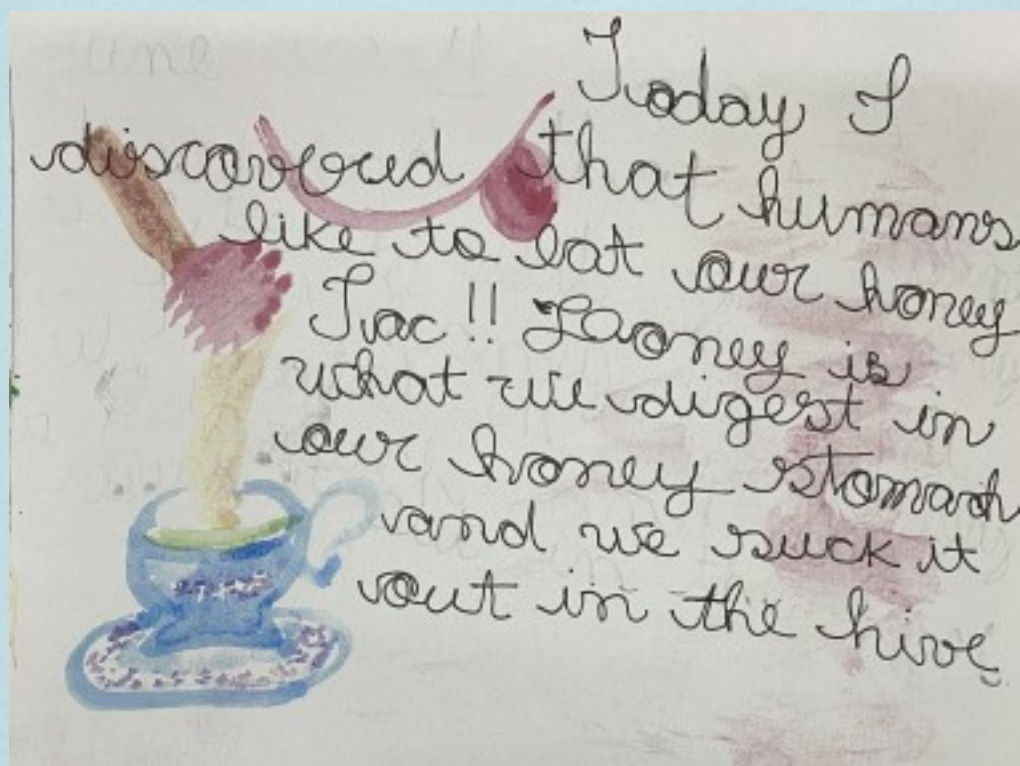 Today I
discovered that humans
like to eat our honey
Tac!! Honey is
what we digest in
our honey stomach
and we suck it
out in the hive